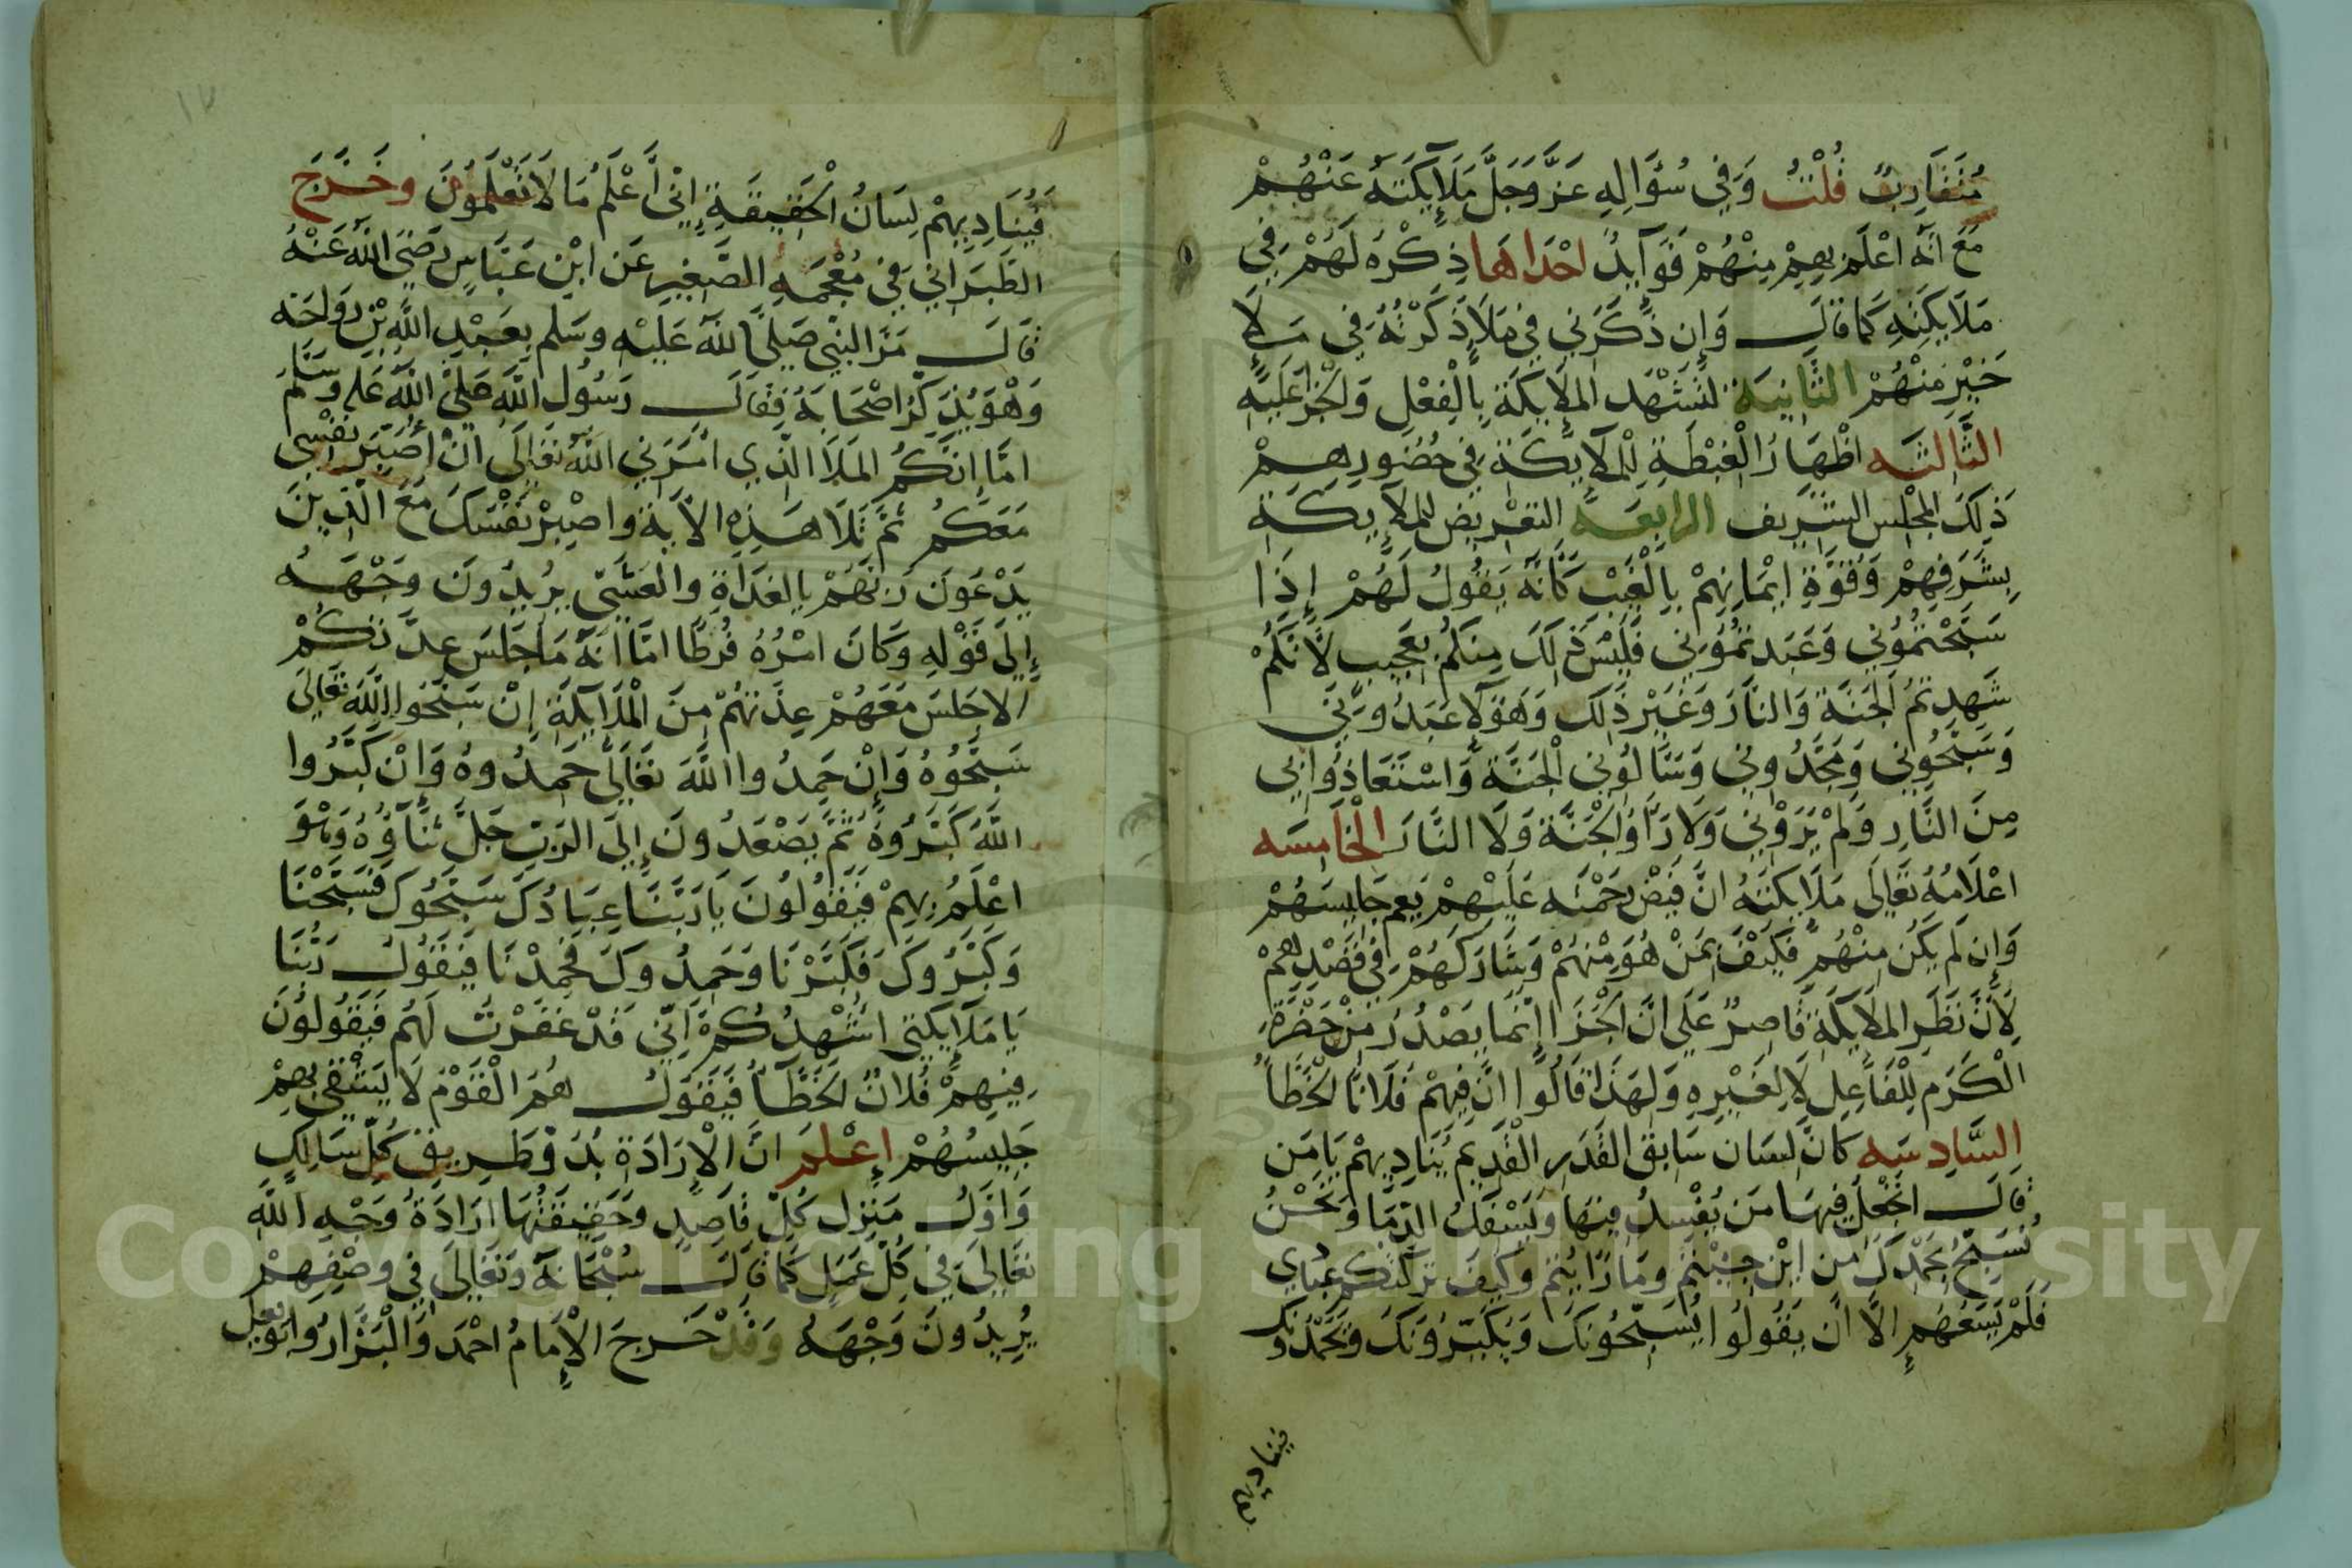 مُتَقَارِبٌ قُلْتُ وَفِي سُؤَالِهِ عَزَّ وَجَلَّ مَلَآئِكَتَهُ عَنْهُمْ
مَعَ اَنَّهُ اَعْلَمُ بِهِمْ مِنْهُمْ فَوَآيِدُ اِحْدَاهَا ذِكْرُهُ لَهُمْ فِي
مَلَايِكَتِهِ كَمَا قَالَ وَاِن ذَكَرَنِي فِي مَلَاٍ ذَكَرْتُهُ فِي مَلَاٍ
خَيْرٍ مِنْهُمْ الثَّانِيَة لِتَشْهَدَ الملَايِكَةُ بِالْفِعْلِ وَالْجَزَا عَلَيْهِ
الثَّالِثَه اِظْهَارُ الْغِبْطَةِ لِلْمَلَآيِكَةِ فِي حُضُورِهِمْ
ذَلِكَ المَجْلِسِ الشَّرِيف الرَابِعَة التعْرِيض لِلْمَلَآيِكَةِ
بِشَرَفِهِمْ وَقُوَّةِ اِيْمَانِهِمْ بِالْغَيْبِ كَأَنَّهُ يَقُولُ لَهُمْ إِذَا
سَبَّحْتُمُونِي وَعَبَدتُمُونِي فَلَيْسَ ذَلِكَ مِنكُمْ بِعَجِيبٍ لأَنَّكُمْ
شَهِدتُمُ الْجَنَّةَ وَالنَّارَ وَغَيْرَ ذَلِكَ وَهَؤلآ عَبَدُونِي
وَسَبَّحُونِي وَمَجَّدُونِي وَسَالُونِي الْجَنَّةَ وَاسْتَعَاذُوا بِي
مِنَ النَّارِ وَلَمْ يَرَوْنِي وَلَا رَأَوُا الْجَنَّةَ وَلَا النَّارَ الْخَامِسَه
اِعْلَامُهُ تَعَالَى مَلَايِكَتَهُ اَنَّ فَيْضَ رَحْمَتِهِ عَلَيْهِمْ يَعُم جَلِيسَهُمْ
وَإِن لَم يَكُن مِنْهُمْ فَكَيْفَ بِمَنْ هُوَ مِنْهُمْ وَشَارَكَهُمْ فِي قَصْدِهِمْ
لِأَنَّ نَظَرَ الملَايِكَةِ قَاصِرٌ عَلَى انَّ الْجَزَا إِنَّمَا يَصْدُرُ مِنْ حَضْرَةِ
الْكَرَمِ لِلْفَاعِلِ لَا لِغَيْرِهِ وَلِهَذَا قَالُوا اِنَّ فِيهِمْ فُلَانًا الْخَطَّأُ
السَّادِسَه كَانَ لِسَان سَابِقِ القَدَرِ الْقَدِيمِ يُنَادِيهِمْ يَا مَن
قَالَ اَتَجْعَلُ فِيهَا مَن يُفْسِدُ فِيهَا وَيَسْفِكُ الدِّمَا وَنَحْنُ
نُسَبِّحُ بِحَمْدِكَ مِن اَيْنَ جِيْتُم وَمَا رَايْتُم وَكَيْفَ تَرَكْتُم عِبَادِي
فَلَمْ يَسَعْهُم إِلَّا اَن يَقُولُوا يُسَبِّحُونَكَ وَيُكَبِّرُونَكَ وَيَحْمَدُونَكَ
فيناديهم
فَيُنَادِيهِمْ لِسَانُ الْحَقِيقَةِ إِنِّي أَعْلَمُ مَا لَا تَعْلَمُونَ وخَرَّجَ
الطَبَرَانِي فِي مُعْجَمِهِ الصَّغِيرِ عَن ابْنِ عَبَّاسٍ رَضِيَ اللَّهُ عَنْهُ
قَالَ مَرَّ النَّبِي صَلَّى اللَّهُ عَلَيْهِ وَسَلم بِعَبْدِ اللَّهِ بْنِ رَوَاحَة
وَهُوَ يُذَكِّرُ اصْحَابَهُ فَقَالَ رَسُولُ اللَّهِ صَلَّى اللَّهُ عَلَيهِ وَسَلَّمَ
امَّا اِنَّكُمُ المَلَأُ الَّذِي اَمَرَنِي اللَّهُ تَعَالَى اَنْ أَصْبِرَ نَفْسِي
مَعَكُم ثُمَّ تَلَا هَذِهِ الآيَةَ وَاصْبِرْ نَفْسَكَ مَعَ الَّذِينَ
يَدْعُونَ رَبَّهُمْ بِالْغَدَاةِ وَالْعَشِيِّ يُرِيدُونَ وَجْهَهُ
إِلَى قَوْلِهِ وَكَانَ اَمْرُهُ فُرُطًا امَّا انَّهُ مَا جَلَسَ عِدَّتُكُمْ
إِلَّا جَلَسَ مَعَهُمْ عِدَّتُهُمْ مِنَ الْمَلَآيِكَةِ إِنْ سَبَّحُوا اللَّهَ تَعَالَى
سَبَّحُوهُ وَإِنْ حَمِدُوا اللَّهَ تَعَالَى حَمِدُوهُ وَإِنْ كَبَّرُوا
اللَّهَ كَبَّرُوهُ ثُمَّ يَصْعَدُونَ إِلَى الرَّبِّ جَلَّ ثَنَاؤُهُ وَهُوَ
اَعْلَمُ بِهِمْ فَيَقُولُونَ يَا رَبَّنَا عِبَادُكَ سَبَّحُوكَ فَسَبَّحْنَا
وَكَبَّرُوكَ فَكَبَّرْنَا وَحَمِدُوكَ فَحَمِدْنَا فَيَقُولُ رَبُّنَا
يَا مَلَآئِكَتِي اُشْهِدُكُمْ اَنِّي قَدْ غَفَرْتُ لَهُم فَيَقُولُونَ
فِيهِمْ فُلَانٌ الْخَطَّأُ فَيَقُولُ هُمُ الْقَوْمُ لَا يَشْقَى بِهِمْ
جَلِيسُهُمْ إِعْلَم انَّ الْاِرَادَةَ بُدُوُّ طَرِيقِ كُلِّ سَالِكٍ
وَاوَلُ مَنزِلِ كُلِّ قَاصِدٍ وَحَقِيقَتُهَا اِرَادَةُ وَجْهِ اللَّهِ
تَعَالَى فِي كُلِّ عَمَلٍ كَمَا قَالَ سُبْحَانَهُ وَتَعَالَى فِي وَصْفِهِمْ
يُرِيدُونَ وَجْهَهُ وَقَدْ خَرجَ الْإِمَامُ احْمَد وَالْبَزَّارُ وَابُو يَعْلى
Copyright © King Saud University
1957